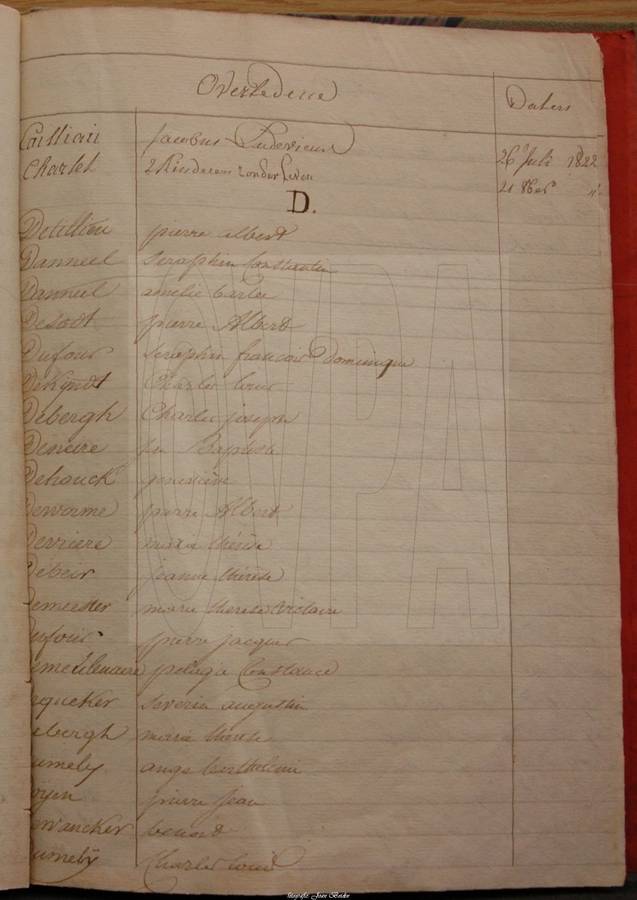 Overledene Daten
Castiau Jacobus Ludovicus 26 Juli 1822
Charlet 2 Kinderen zonder Leven 21
D.
Detillieu pierre albert
Danneel Seraphin Constantin
Danneel amelie
Desodt pierre Albert
Dufour seraphin francois Dominique
DeKyndt Charles louis
Debergh Charles joseph
Demeire jn Baptiste
Dehouck genevieve
Deworme pierre Albert
Derriere marie thérèse
Debeir jeanne thérèse
emeester marie therese victoire
ufour pierre jacques
emeulenaere pelagie Constance
queker severin augustin
ebergh marie therese
umely ange
oyen pierre jean
wancker benoit
umely Charles louis
OVPA
fotografie Johan Beirlen